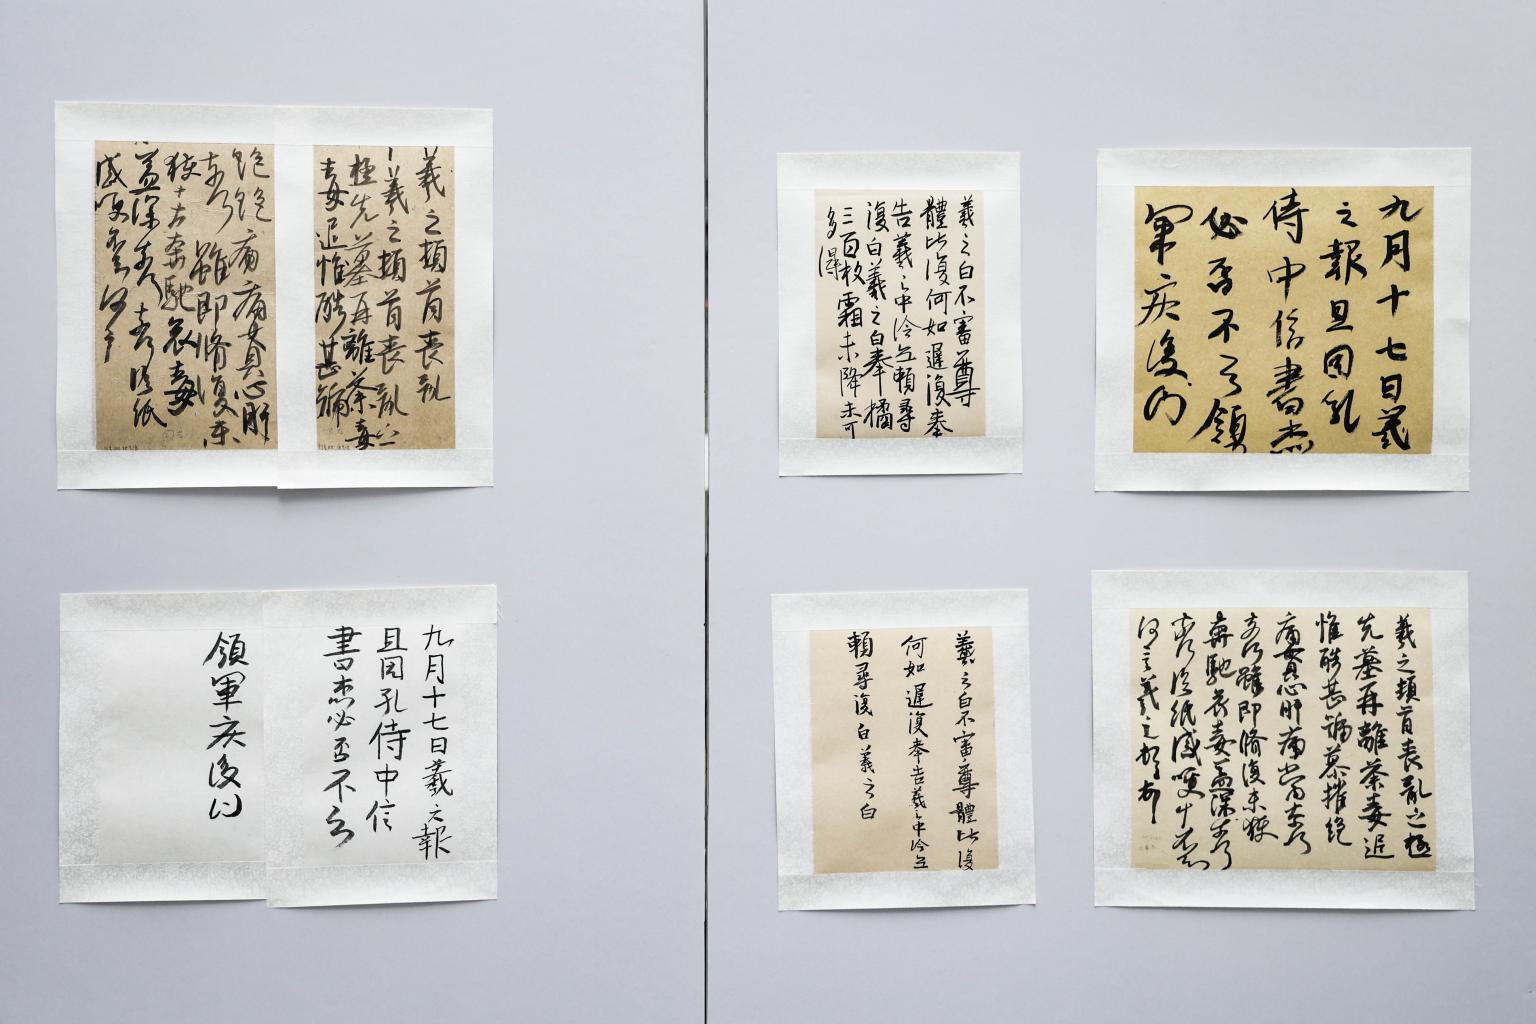 羲之頓首喪亂
羲之頓首喪亂之
極先墓再離荼毒
毒追惟酷甚號
絕絕痛痛貫心肝
奈何雖即脩復未
獲奔馳哀毒
益深奈何奈何臨紙
感哽不知何言
羲之白不審尊
體比復何如遲復奉
告羲之中冷無賴尋
復白羲之白奉橘
三百枚霜未降未可
多得
九月十七日羲
之報且因孔
侍中信書想
必至不知領
軍疾後問
九月十七日羲之報
且因孔侍中信
書想必至不知
領軍疾後問
羲之白不審尊體比復
何如遲復奉告羲之中冷無
賴尋復白羲之白
羲之頓首喪亂之極
先墓再離荼毒追
惟酷甚號慕摧絕
痛貫心肝痛當奈何
奈何雖即脩復未獲
奔馳哀毒益深奈何
奈何臨紙感哽不知
何言羲之頓首